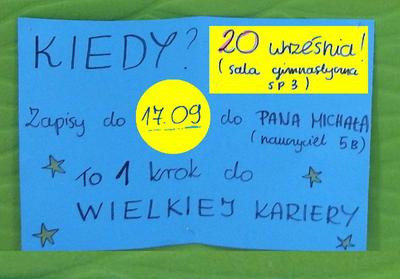 KIEDY? 20 września!
(sala gimnastyczna
SP3)
Zapisy do 17.09 do PANA MICHAŁA
(nauczyciel 5B)
To 1 krok do
WIELKIEJ KARIERY